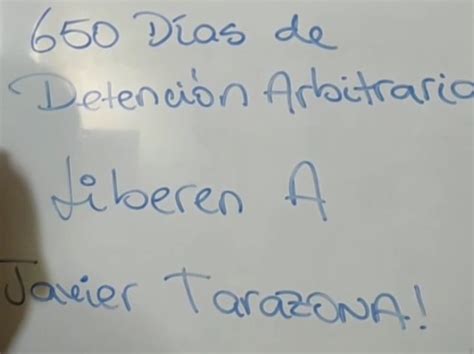 650 Días de
Detención Arbitraria
Liberen A
Javier TarazONA!